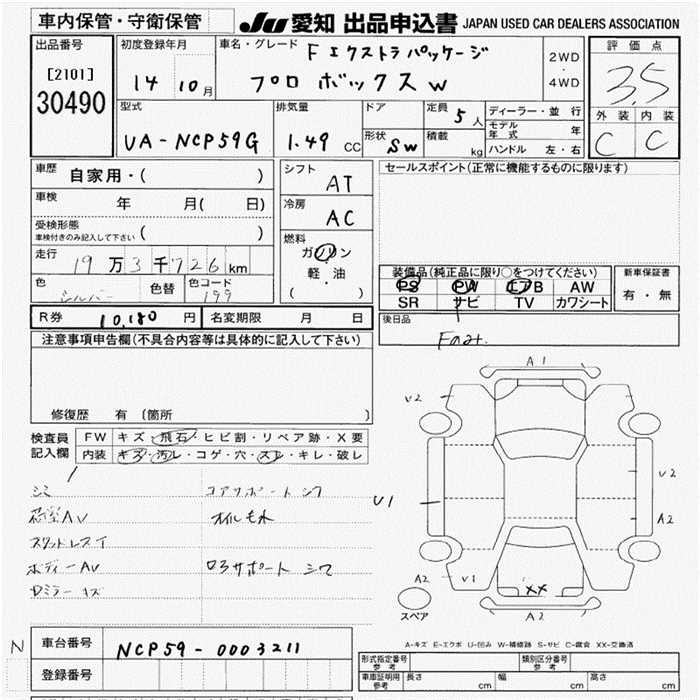 車内保管・守衛保管
JU 愛知 出品申込書 JAPAN USED CAR DEALERS ASSOCIATION
出品番号
[2101]
30490
初度登録年月
14 年 10 月
車名・グレード
F エクストラ パッケージ
プロ ボックス W
2WD
・
4WD
評価点
3.5
外装 内装
C C
型式
UA-NCP59G
排気量
1.49 CC
ドア
形状
SW
定員
5 人
積載
kg
ディーラー・並行
モデル年式 年
ハンドル 左・右
車歴
自家用・( )
車検
年 月( 日)
受検形態
車検付きのみ記入して下さい ( )
走行
19 万 3 千 726 km
色
シルバー
色替
色コード
199
シフト
AT
冷房
AC
燃料
ガソリン
軽・油
( )
セールスポイント(正常に機能するものに限ります)
装備品(純正品に限り○をつけてください)
PS PW エアB AW
SR ナビ TV カワシート
新車保証書
有・無
後日品
R券 10,180 円
名変期限 月 日
注意事項申告欄(不具合内容等は具体的に記入して下さい)
修復歴 有 〔箇所 〕
検査員
記入欄
FW キズ・飛石・ヒビ割・リペア跡・X要
内装 キズ・汚レ・コゲ・穴・スレ・キレ・破レ
シミ
コアサポート シワ
荷室AV
オイルモレ
スタッドレスタイ
ボディーAV
ロアサポート シワ
Dミラー キズ
A1
V2
V2
V1
A2
A2
V1
XX
A2
スペア
A-キズ E-エクボ U-凹み W-補修跡 S-サビ C-腐食 XX-交換済
N
車台番号
NCP59-0003211
登録番号
形式指定番号
参考
類別区分番号
参考
車庫証明用
参考
長さ cm
幅 cm
高さ cm